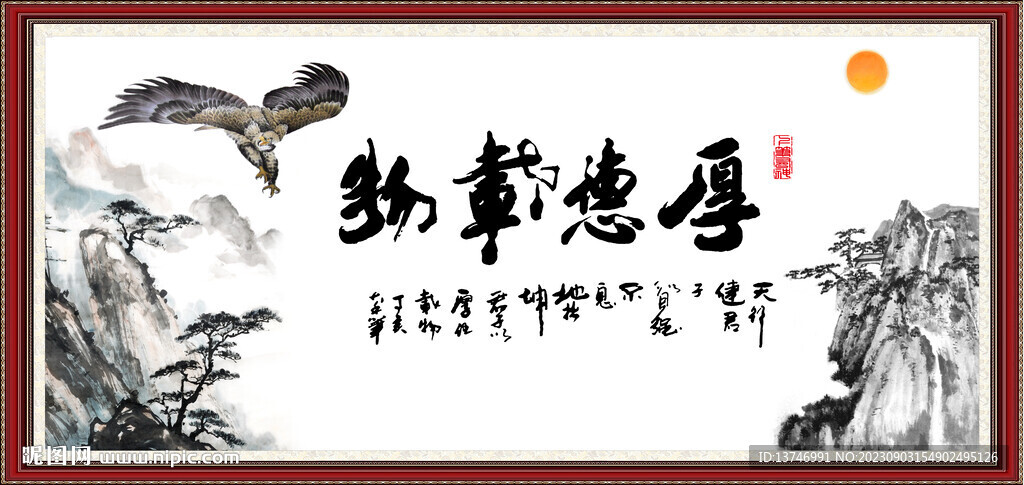 厚德載物
天行
健君
子
以自强
不
息
地势
坤
君子以
厚德
载物
丁亥
昵图网 www.nipic.com
ID:13746991 NO:20230903154902495126